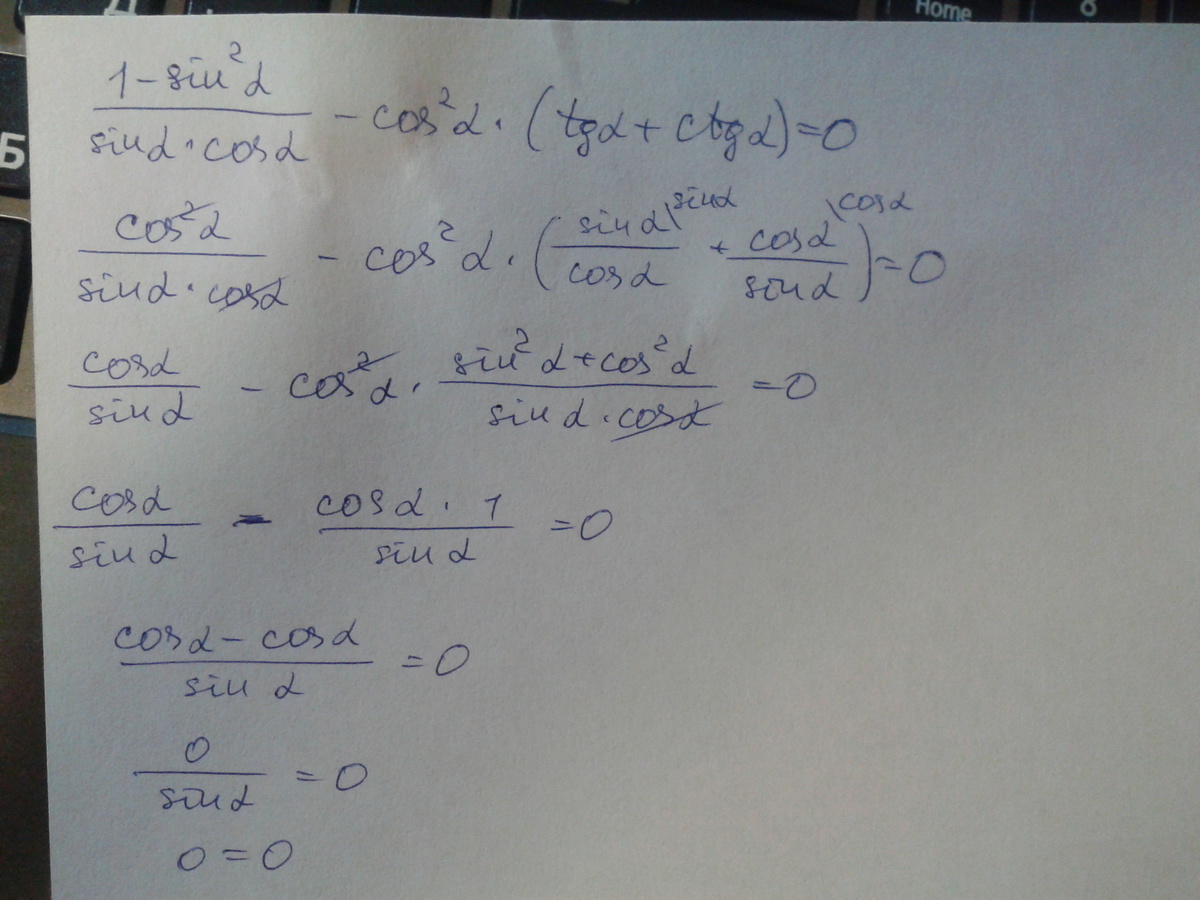 Home 8
Б
(1 - sin²α)/(sinα · cosα) - cos²α · (tgα + ctgα) = 0
cos²α/(sinα · cosα) - cos²α · (sinα/cosα \sinα + cosα/sinα \cosα) = 0
cosα/sinα - cos²α · (sin²α + cos²α)/(sinα · cosα) = 0
cosα/sinα - (cosα · 1)/sinα = 0
(cosα - cosα)/sinα = 0
0/sinα = 0
0 = 0